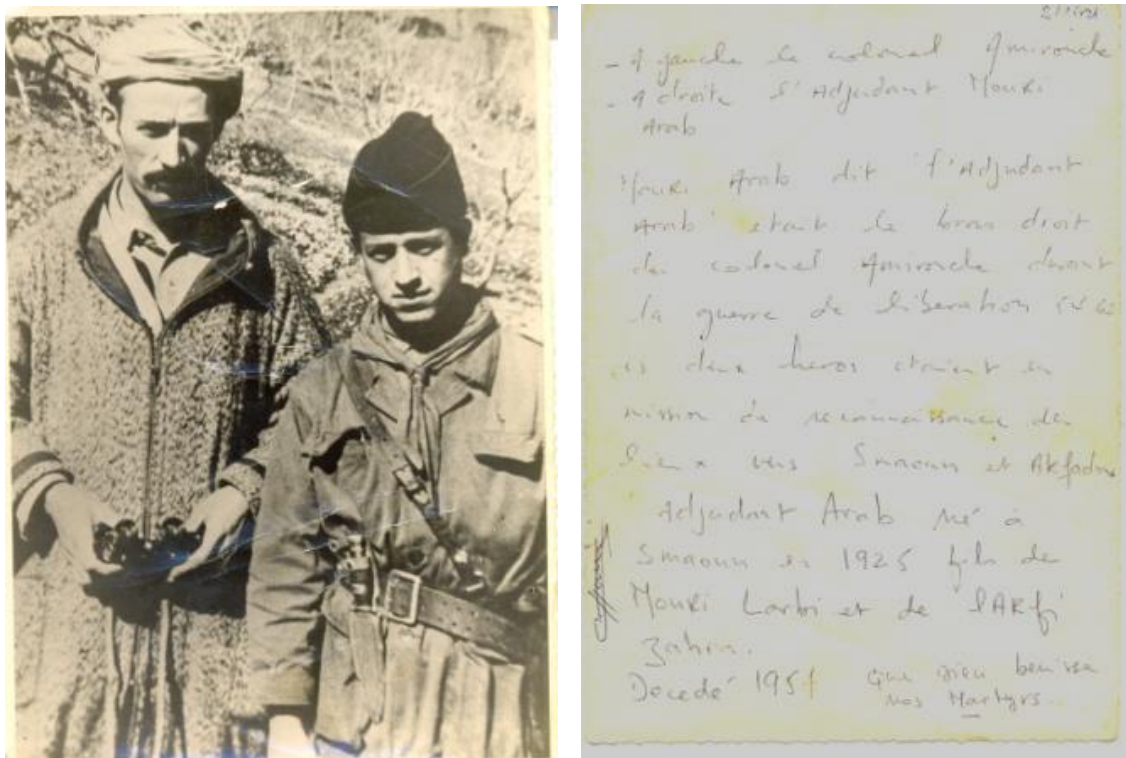 - A gauche le colonel Amirouche
- A droite l'Adjudant Mouri
Arab
Mouri Arab dit l'Adjudant
Arab etait le bras droit
du colonel Amirouche durant
la guerre de liberation
deux heros etaient en
mission de reconnaissance des
lieux vers Smaoun et Akfadou
Adjudant Arab né à
Smaoun en 1925 fils de
Mouri Larbi et de lARfi
Zahra.
Decedé 195
que Dieu benisse
nos Martyrs